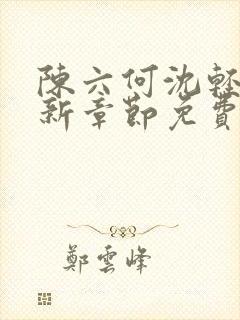 陳六何沈輕
新章節免費
鄭雲峰